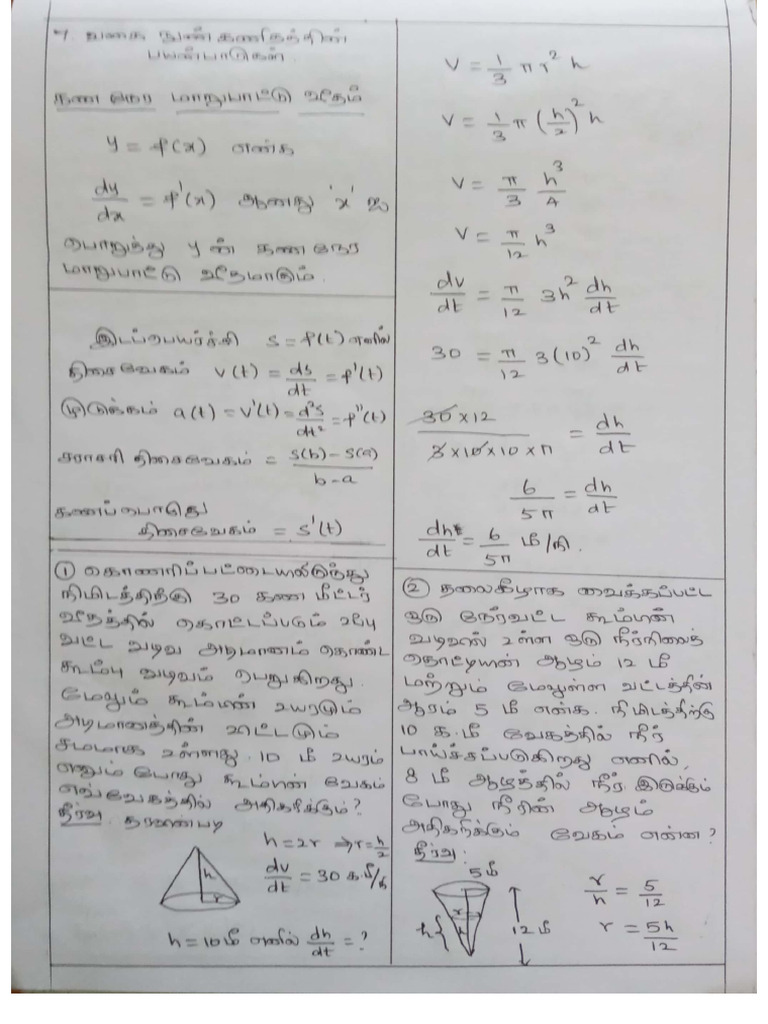 7. வகை நுண் கணிதத்தின்
பயன்பாடுகள்
கண நேர மாறுபாட்டு வீதம்
y = f(x) என்க
dy/dx = f'(x) ஆனது 'x' ஐ
பொறுத்து y ன் கண நேர
மாறுபாட்டு வீதமாகும்.
இடப்பெயர்ச்சி s = f(t) எனில்
திசைவேகம் v(t) = ds/dt = f'(t)
முடுக்கம் a(t) = v'(t) = d²s/dt² = f''(t)
சராசரி திசைவேகம் = s(b) - s(a) / b - a
கணப்பொழுது
திசைவேகம் = s'(t)
① கொணரிப்பட்டையிலிருந்து
நிமிடத்திற்கு 30 கண மீட்டர்
வீதத்தில் கொட்டப்படும் உப்பு
வட்ட வடிவ அடிமானம் கொண்ட
கூம்பு வடிவம் பெறுகிறது.
மேலும் கூம்பின் உயரமும்
அடிமானத்தின் விட்டமும்
சமமாக உள்ளது. 10 மீ உயரம்
எனும் போது கூம்பின் வேகம்
எவ்வேகத்தில் அதிகரிக்கும்?
தீர்வு. தரவுண்படி
h = 2r ⇒ r = h/2
h
r
dv/dt = 30 க.மீ/நி
h = 10 மீ எனில் dh/dt = ?
V = 1/3 π r² h
V = 1/3 π (h/2)² h
V = π/3 h³/4
V = π/12 h³
dv/dt = π/12 3h² dh/dt
30 = π/12 3(10)² dh/dt
30 × 12 / 3 × 10 × 10 × π = dh/dt
6/5π = dh/dt
dh/dt = 6/5π மீ/நி.
② தலைகீழாக வைக்கப்பட்ட
ஒரு நேர்வட்ட கூம்பின்
வடிவில் உள்ள ஒரு நீர்நிலைத்
தொட்டியின் ஆழம் 12 மீ
மற்றும் மேலுள்ள வட்டத்தின்
ஆரம் 5 மீ என்க. நிமிடத்திற்கு
10 க.மீ வேகத்தில் நீர்
பாய்ச்சப்படுகிறது எனில்,
8 மீ ஆழத்தில் நீர் இருக்கும்
போது நீரின் ஆழம்
அதிகரிக்கும் வேகம் என்ன?
தீர்வு:
5 மீ
r
h
12 மீ
r/h = 5/12
r = 5h/12